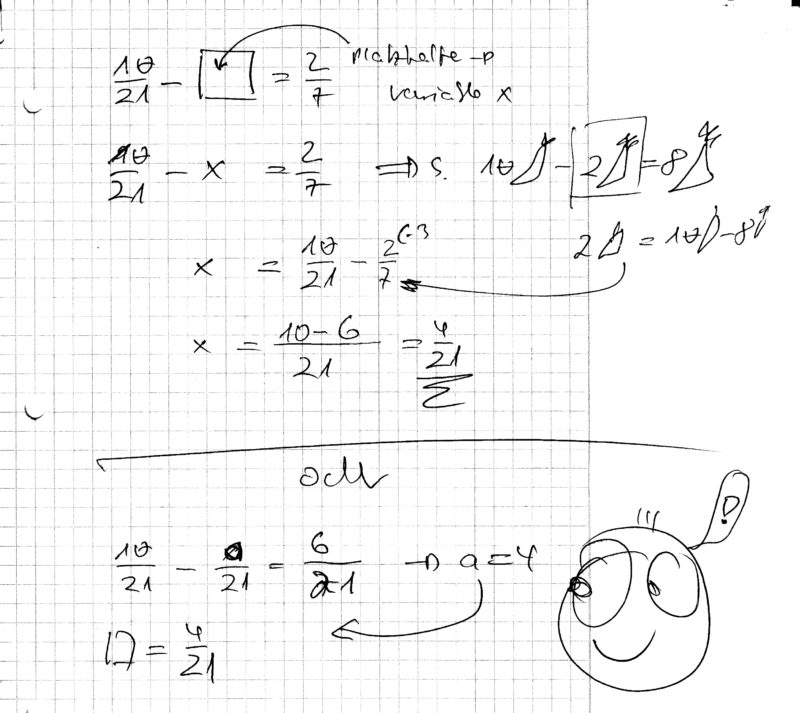 10/21 - □ = 2/7 Platzhalter → variable x
10/21 - x = 2/7 ⇒ s. 10 - 2 = 8
2 = 10 - 8
x = 10/21 - 2/7 (·3
x = (10-6)/21 = 4/21
oder
10/21 - a/21 = 6/21 → a=4
□ = 4/21
!